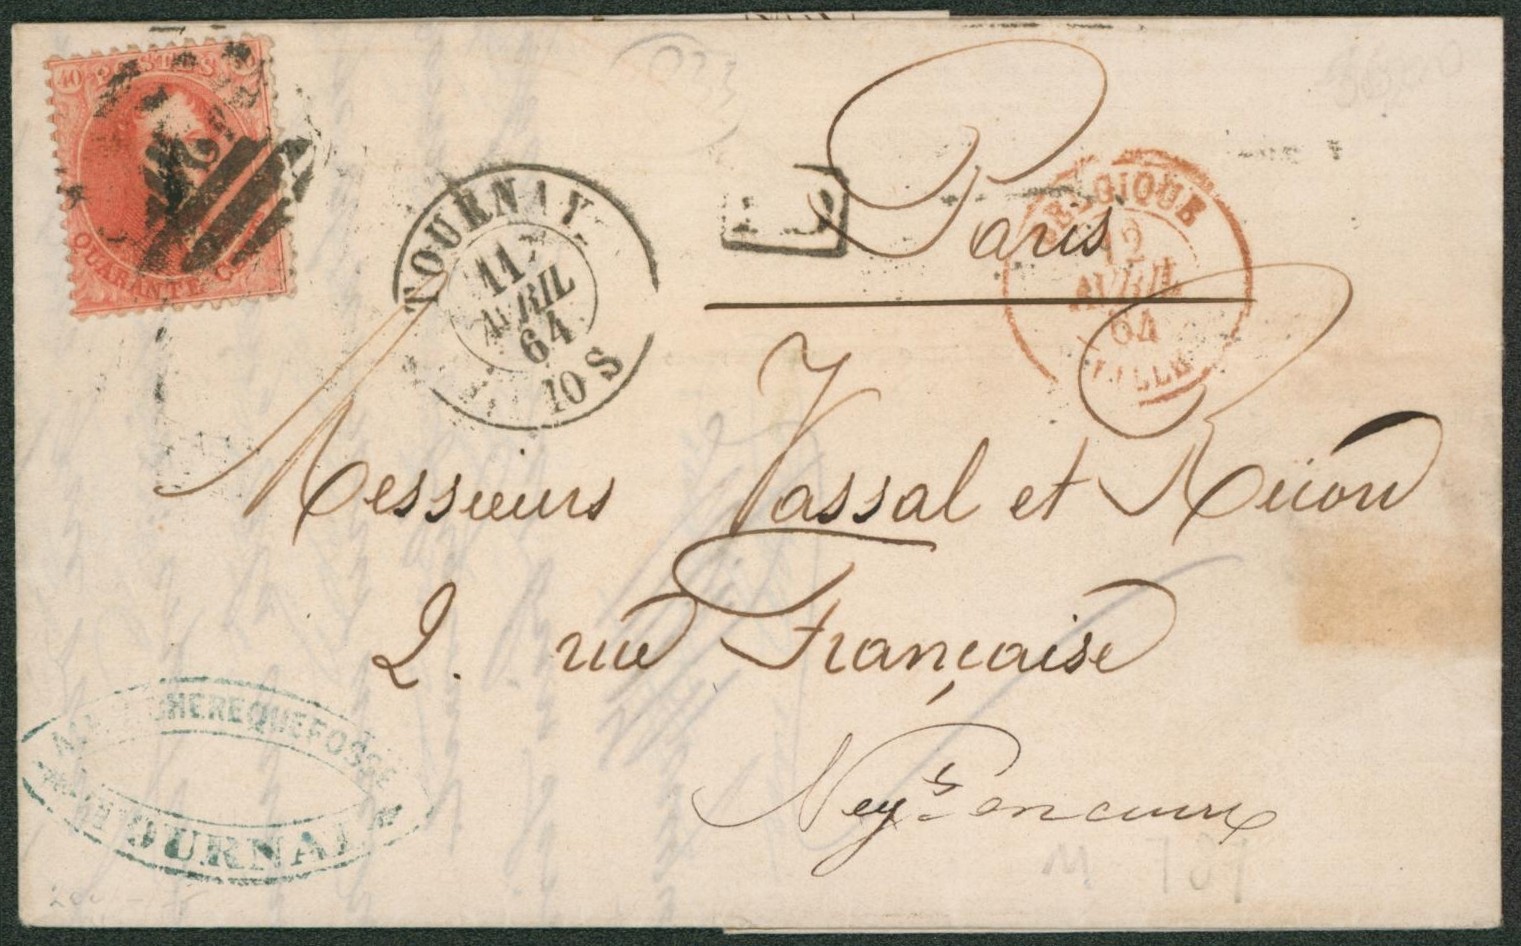 40
QUARANTE C
TOURNAY
11
AVRIL
64
10 S
PD
BELGIQUE
12
AVRIL
64
LILLE
Paris
Messieurs Vassal et
2. rue Française
Neg.ts en cuirs
CHEREQUEFOSSE
TOURNAI
M 787